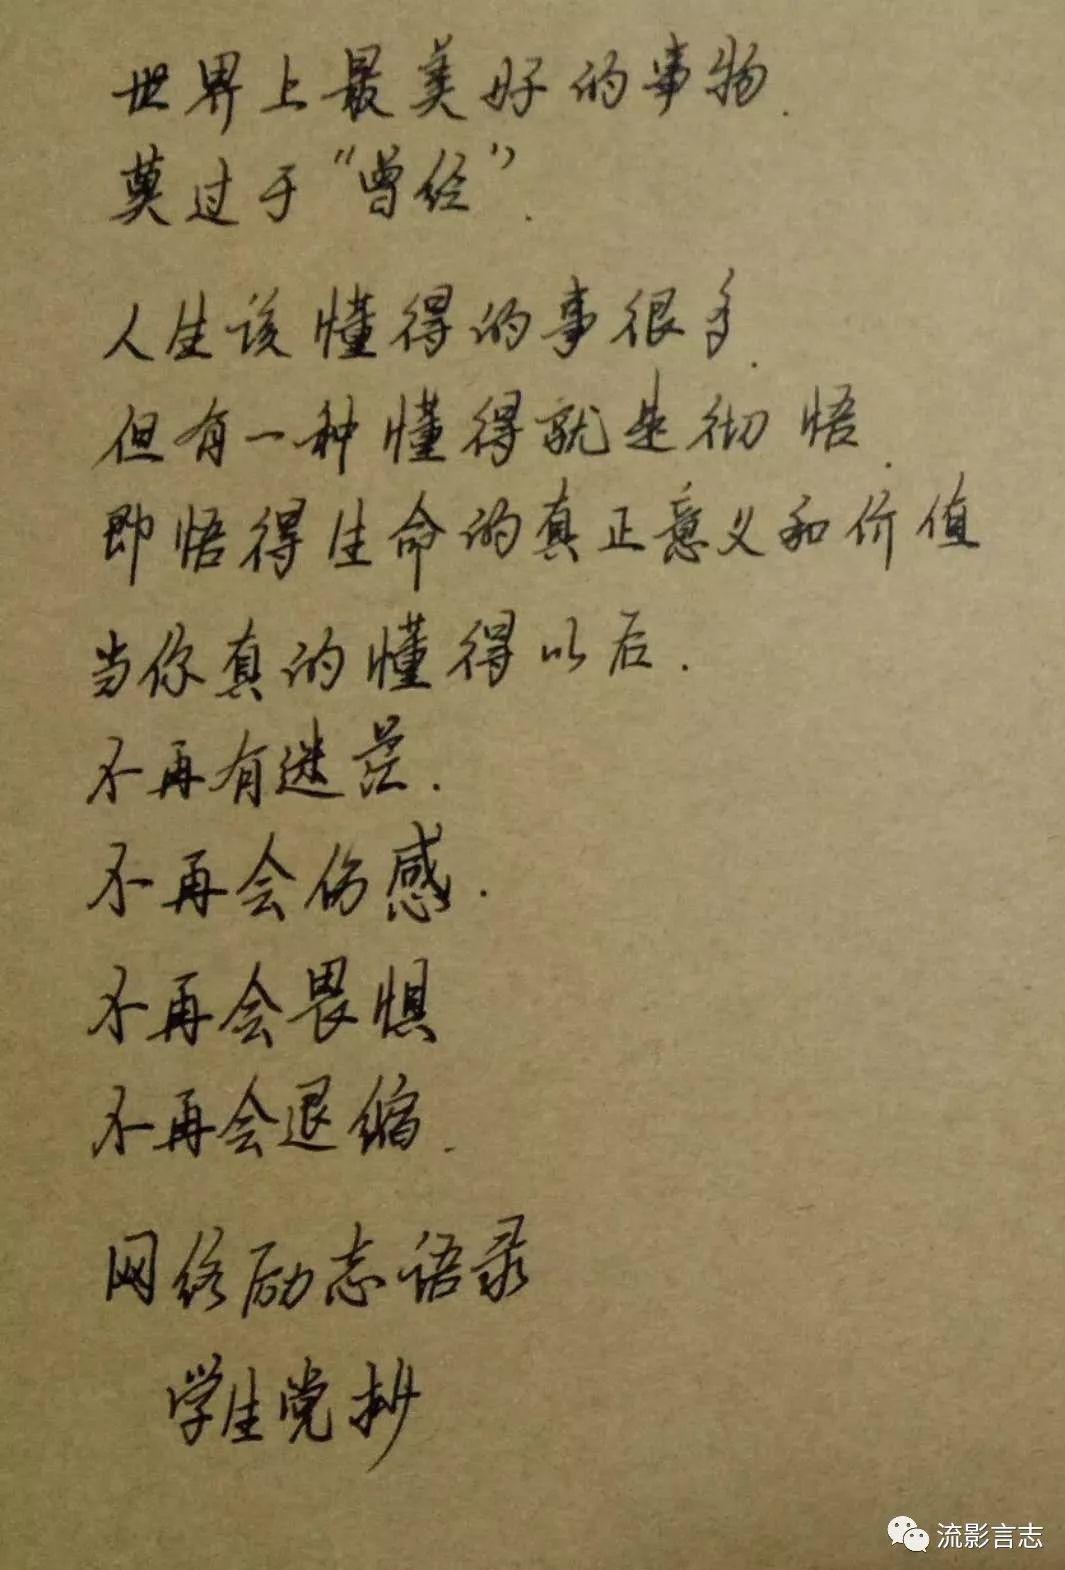 世界上最美好的事物.
莫过于“曾经”.
人生该懂得的事很多.
但有一种懂得就是彻悟.
即悟得生命的真正意义和价值
当你真的懂得以后.
不再有迷茫.
不再会伤感.
不再会畏惧
不再会退缩.
网络励志语录
学生党抄
流影言志